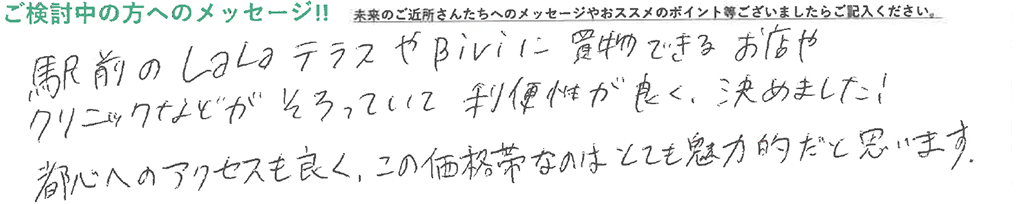 ご検討中の方へのメッセージ!! 未来のご近所さんたちへのメッセージやおススメのポイント等ございましたらご記入ください。
駅前のLaLaテラスやBiViに買物できるお店や
クリニックなどがそろっていて利便性が良く、決めました！
都心へのアクセスも良く、この価格帯なのはとても魅力的だと思います.